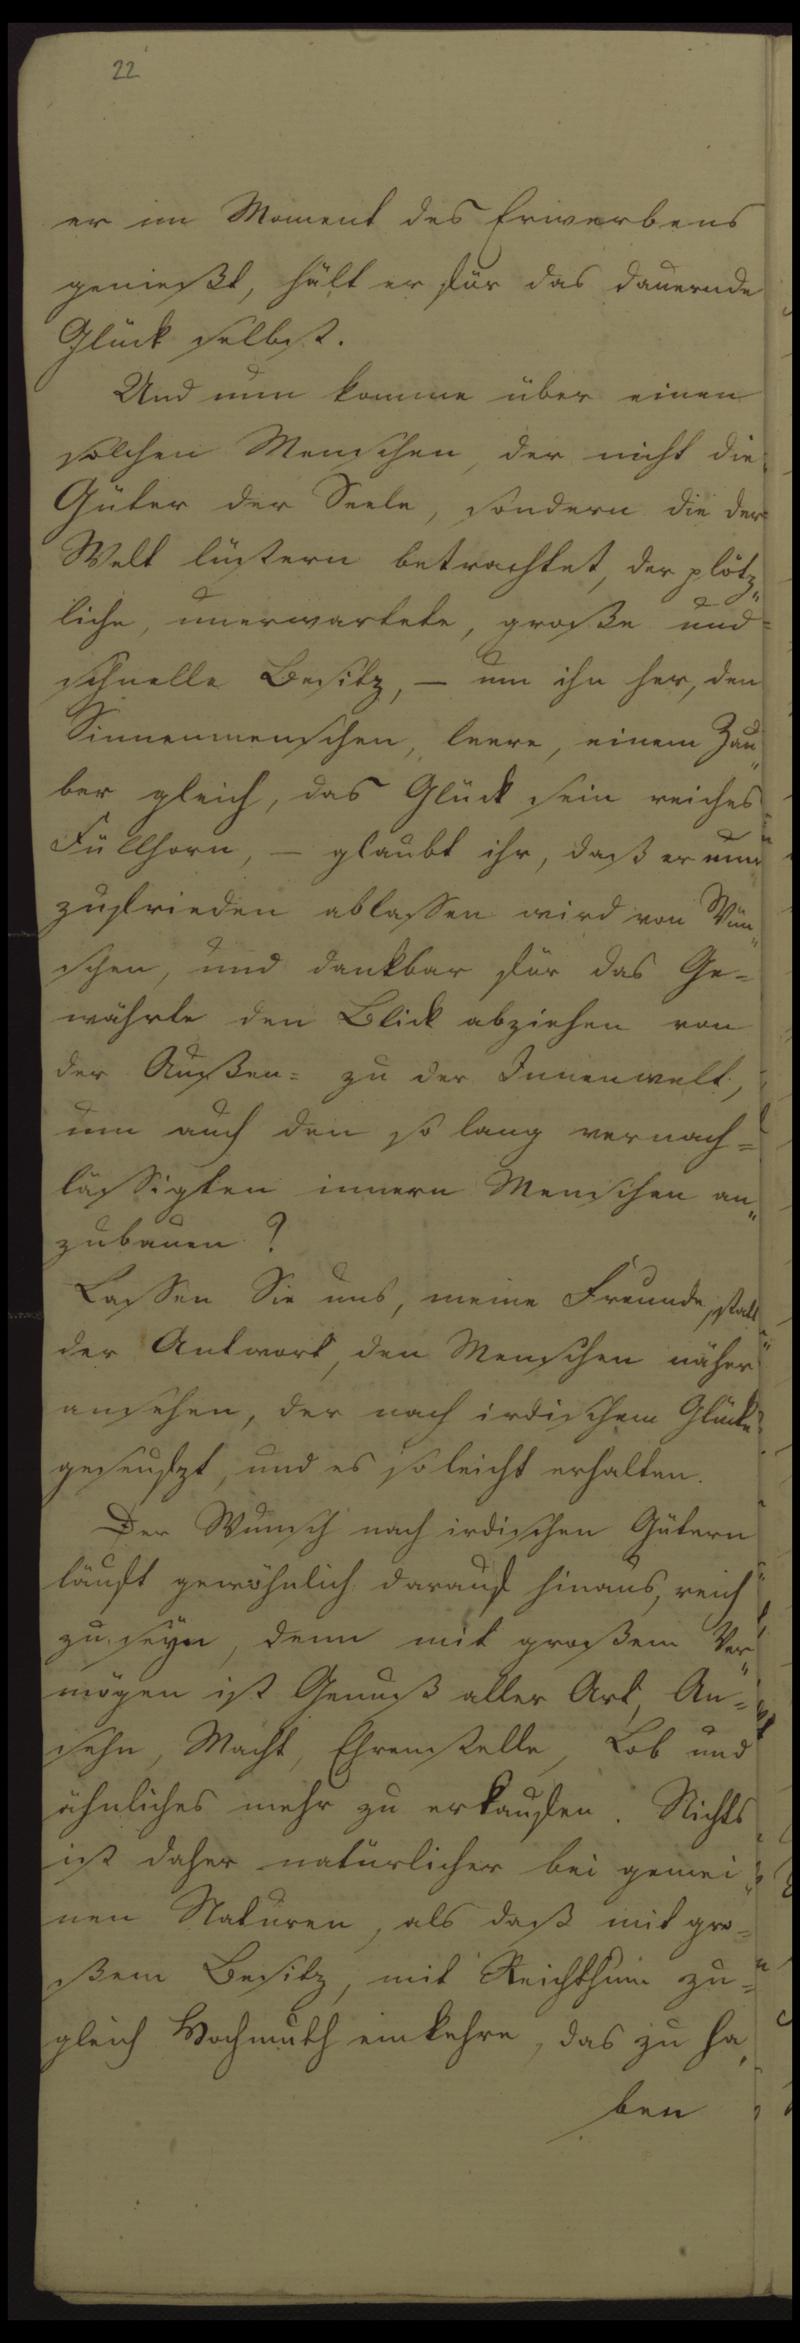 22
er im Moment des Erwerbens
genießt, hält er für das dauernde
Glück selbst.
Und nun komme über einen
solchen Menschen, der nicht die
Güter der Seele, sondern die der
Welt lüstern betrachtet, der plötz„
liche, unerwartete, große und
schnelle Besitz, — um ihn her, den
Sinnenmenschen, leere, einem Zau„
ber gleich, das Glück sein reiches
Füllhorn, — glaubt ihr, daß er nun
zufrieden ablassen wird von Wün„
schen, und dankbar für das Ge=
währte den Blick abziehen von
der Außen= zu der Innenwelt,
um auch den so lang vernach=
lässigten innern Menschen an„
zubauen?
Lassen Sie uns, meine Freunde, statt
der Antwort, den Menschen näher
ansehen, der nach irdischem Glücke
geseufzt, und es so leicht erhalten.
Der Wunsch nach irdischen Gütern
läuft gewöhnlich darauf hinaus, reich
zu seyn, denn mit großem Ver„
mögen ist Genuß aller Art, An=
sehn, Macht, Ehrenstelle, Lob und
ähnliches mehr zu erkaufen. Nichts
ist daher natürlicher bei gemei„
nen Naturen, als daß mit gro=
ßem Besitz, mit Reichthum zu=
gleich Hochmuth einkehre, das zu ha„
ben